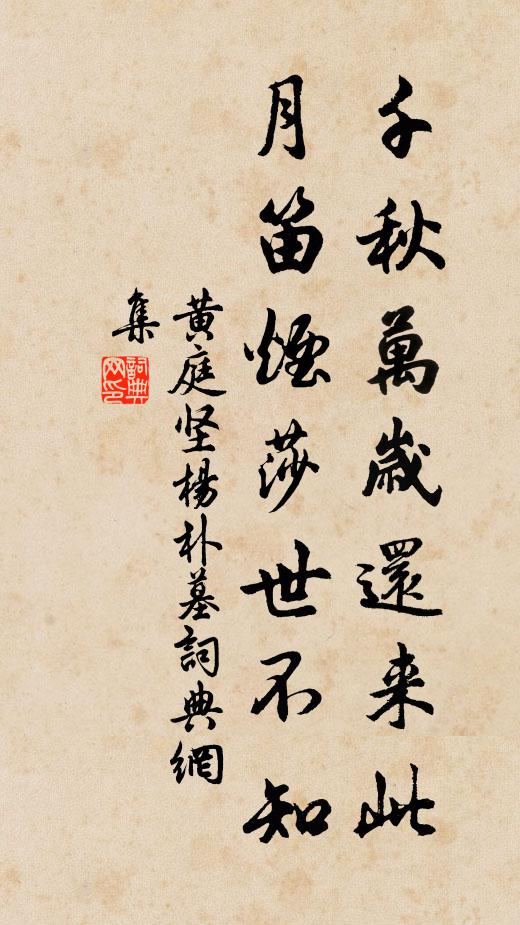 千秋萬歲還来此
月笛煙莎世不知
黄庭坚楊朴墓詞典網
集
詞典
网印